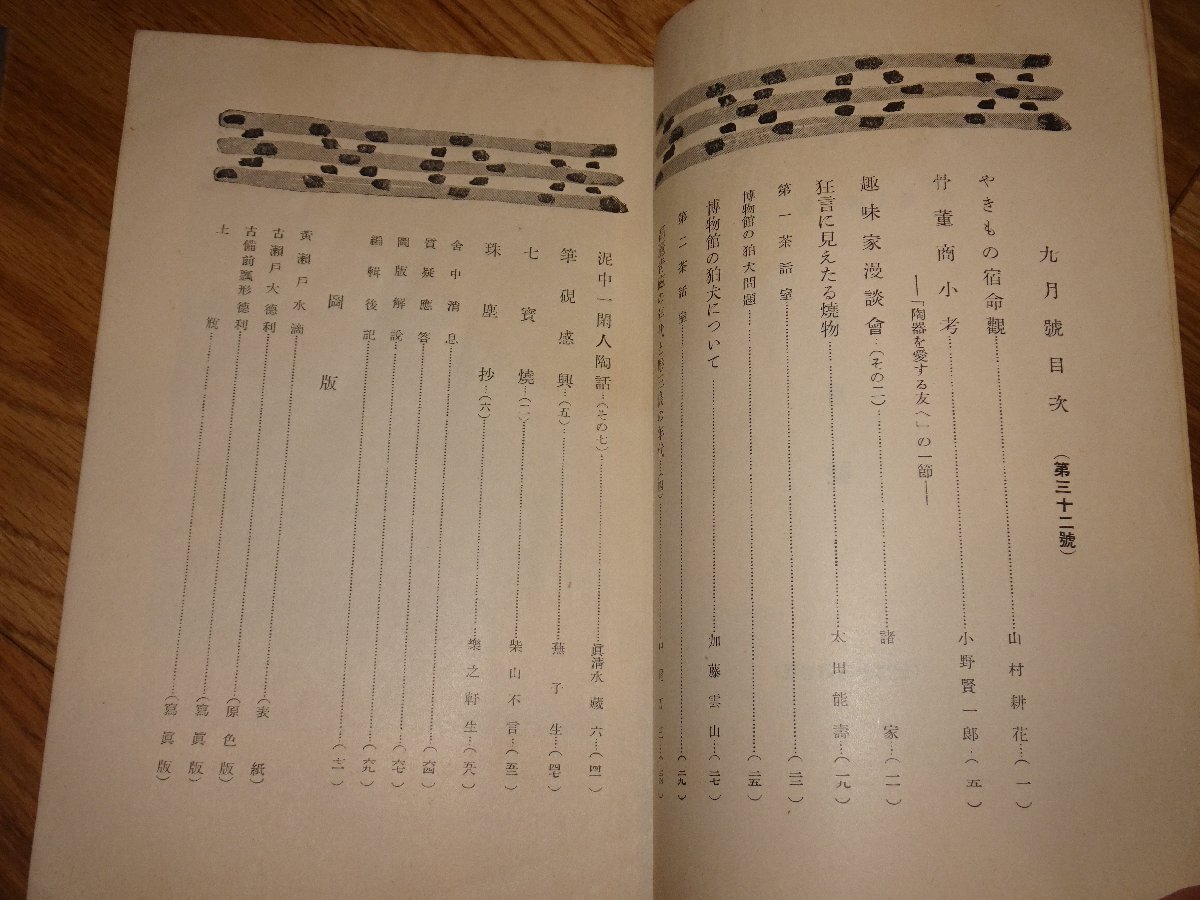 九月號目次(第三十二號)
やきもの宿命觀……山村耕花…(一)
骨董商小考……小野賢一郎…(五)
――「陶器を愛する友へ」の一節――
趣味家漫談會…(その二)……諸家…(一一)
狂言に見えたる燒物……太田能壽…(一九)
第一茶話室……(二三)
博物館の狛犬問題……(二五)
博物館の狛犬について……加藤雲山…(二七)
第二茶話室……(二九)
泥中一閑人陶話…(その七)……眞清水藏六…(四一)
筆硯感興…(五)……蕪子生…(四七)
七寶燒…(二)……柴山不言…(五二)
珠塵抄…(六)……樂之軒生…(五八)
舍中消息……(六二)
質疑應答……(六四)
圖版解說……(六七)
編輯後記……(六九)
圖版
黃瀨戶水滴……(表紙)
古瀨戶大德利……(原色版)
古備前瓢形德利……(寫眞版)
土瓶……(寫眞版)